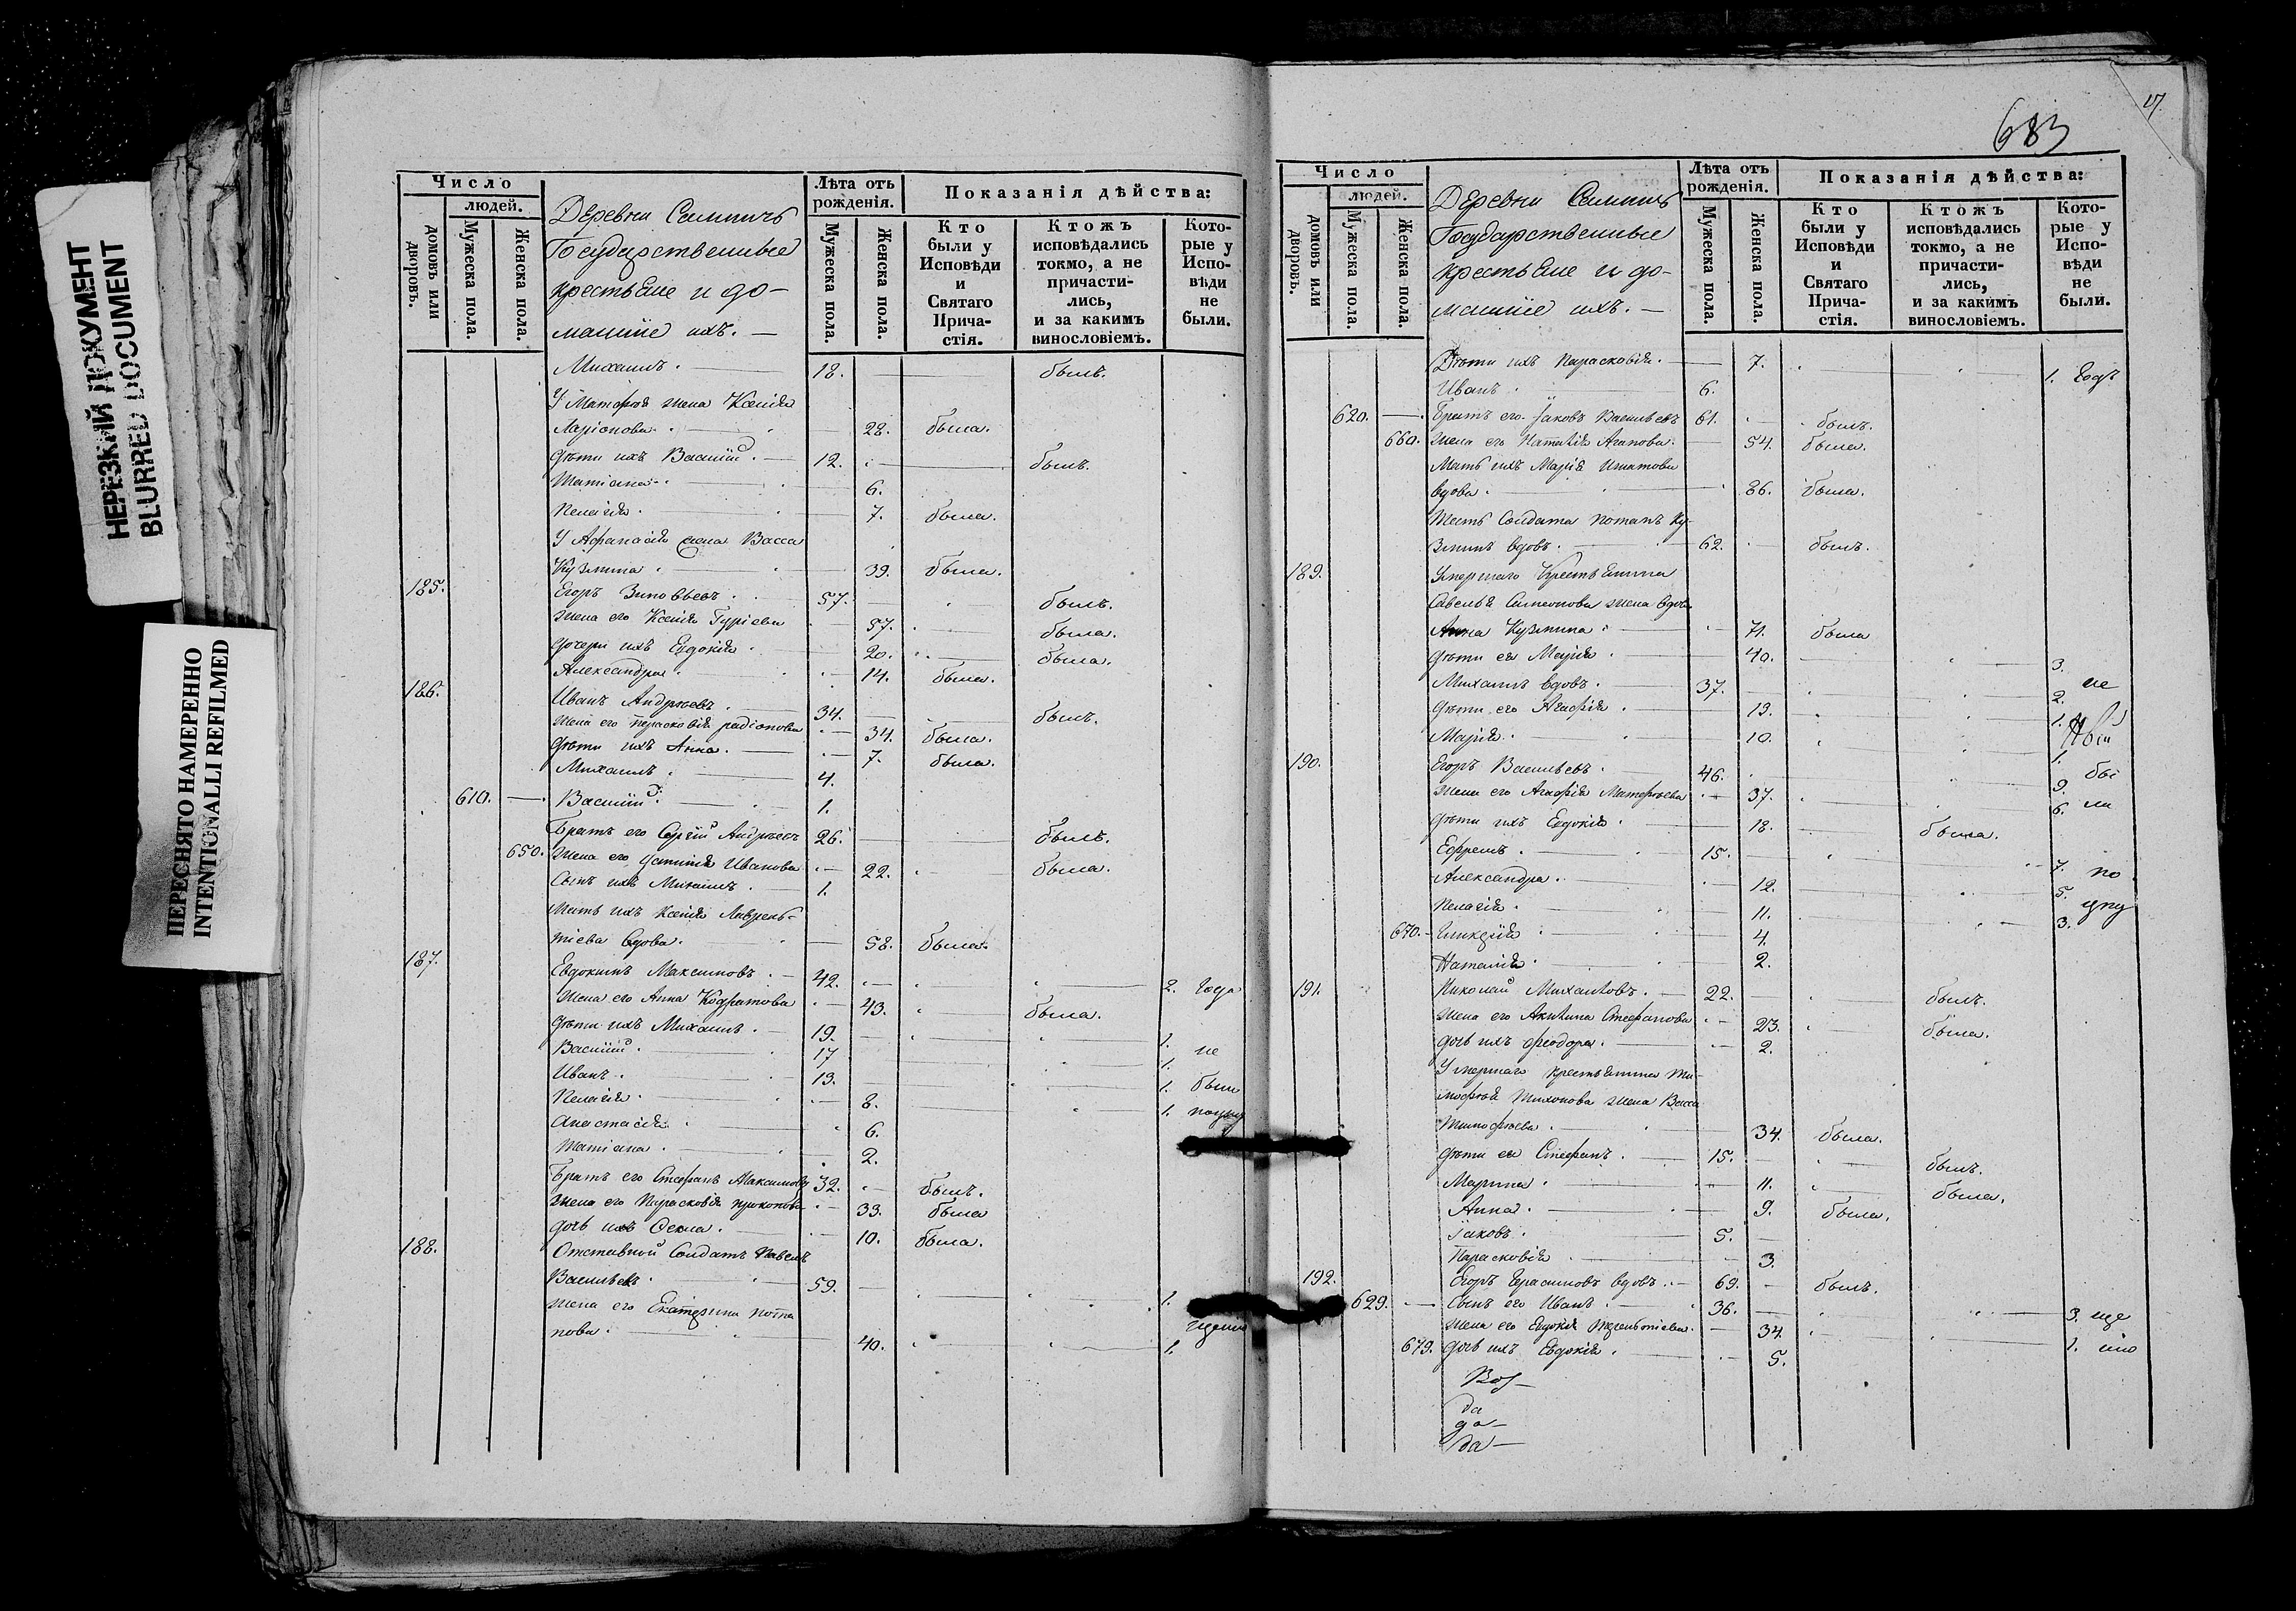 НЕРЕЗКИЙ ДОКУМЕНТ
BLURRED DOCUMENT
ПЕРЕСНЯТО НАМЕРЕННО
INTENTIONALLI REFILMED
Число
людей.
домовъ или дворовъ.
Мужеска пола.
Женска пола.
Деревни
Государственные
крестьяне и до-
машніе ихъ. —
Лѣта отъ рожденія.
Мужеска пола.
Женска пола.
Показанія дѣйства:
Кто были у Исповѣди и Святаго Прича-стія.
Ктожъ исповѣдались токмо, а не причасти-лись, и за какимъ винословіемъ.
Кото-рые у Испо-вѣди не были.
Михаилъ. 18. былъ.
У жена Ксенія
Ларіонова. 28. была.
дѣти ихъ Василій. 12. былъ.
Татіана. 6.
Пелагія. 7. была.
У Афанасія жена Васса
Кузмина. 39. была.
185. Егоръ Зиновьевъ. 57. былъ.
жена его Ксенія Гуріева 57. была.
дочери ихъ Евдокія. 20. была.
Александра. 14. была.
186. Иванъ Андреевъ. 34. былъ.
жена его Парасковія Радіонова 34. была.
дѣти ихъ Анна. 7. была.
Михаилъ. 4.
610. — Василій. 1.
Братъ его Сергій Андреевъ 26. былъ.
650. жена его Устинія Иванова 22. была.
Сынъ ихъ Михаилъ. 1.
Мать ихъ Ксенія Лаврень-
тіева вдова. 58. была.
187. Евдокимъ Максимовъ. 42. 2. года
жена его Анна Кодратова 43. была.
дѣти ихъ Михаилъ. 19. 1.
Василій. 17 1. не
Иванъ. 13. 1. были
Пелагія. 8. 1.
Анастасія. 6.
Татіана. 2.
Братъ его Стефанъ Максимовъ 32. былъ.
жена его Парасковія Прокопова 33. была
дочь ихъ Фекла. 10. была.
188. Отставной Солдатъ Павелъ
Васильевъ. 59. 1.
жена его Екатерина Пота
пова. 40. 1.
683
17.
Число
людей.
домовъ или дворовъ.
Мужеска пола.
Женска пола.
Деревни
Государственные
крестьяне и до-
машніе ихъ. —
Лѣта отъ рожденія.
Мужеска пола.
Женска пола.
Показанія дѣйства:
Кто были у Исповѣди и Святаго Прича-стія.
Ктожъ исповѣдались токмо, а не причасти-лись, и за какимъ винословіемъ.
Кото-рые у Испо-вѣди не были.
Дѣти ихъ Парасковія. 7. 1. годъ
Иванъ. 6.
620. — Братъ его Іаковъ Васильевъ 61. былъ.
660. жена его Наталія Агапова. 54. была.
Мать ихъ Марія Игнатова
вдова. 86. была.
Тесть Солдата Потапъ Ку-
зминъ вдовъ. 62. былъ.
189. Умершаго Крестьянина
Савелья Симеонова жена вдова
Анна Кузмина. 71. была
дѣти ея Марія. 40. 3.
Михаилъ вдовъ. 37. 2. не
дѣти его Агафія. 13. 1.
Марія. 10. 1.
190. Егоръ Васильевъ. 46. 9. бы
жена его Агафія Матфеева 37. 6. ли
дѣти ихъ Евдокія. 18. была.
Ефремъ. 15. 7. по
Александра. 12. 5.
Пелагія. 11. 3.
670. 4.
Наталія. 2.
191. Николай Михайловъ. 22. былъ.
жена его Акилина Стефанова 23. была.
дочь ихъ Феодора. 2.
Умершаго крестьянина Ти-
мофея Тихонова жена Васса
Тимофеева. 34. была.
дѣти ея Стефанъ. 15. былъ.
Марина. 11. была.
Анна. 9. была.
Іаковъ. 5.
Парасковія. 3.
192. Егоръ Герасимовъ вдовъ. 69. былъ.
629. — Сынъ его Иванъ. 36. 3.
жена его Евдокія Терентіева. 34. 1.
679. дочь ихъ Евдокія. 5.
да
да —